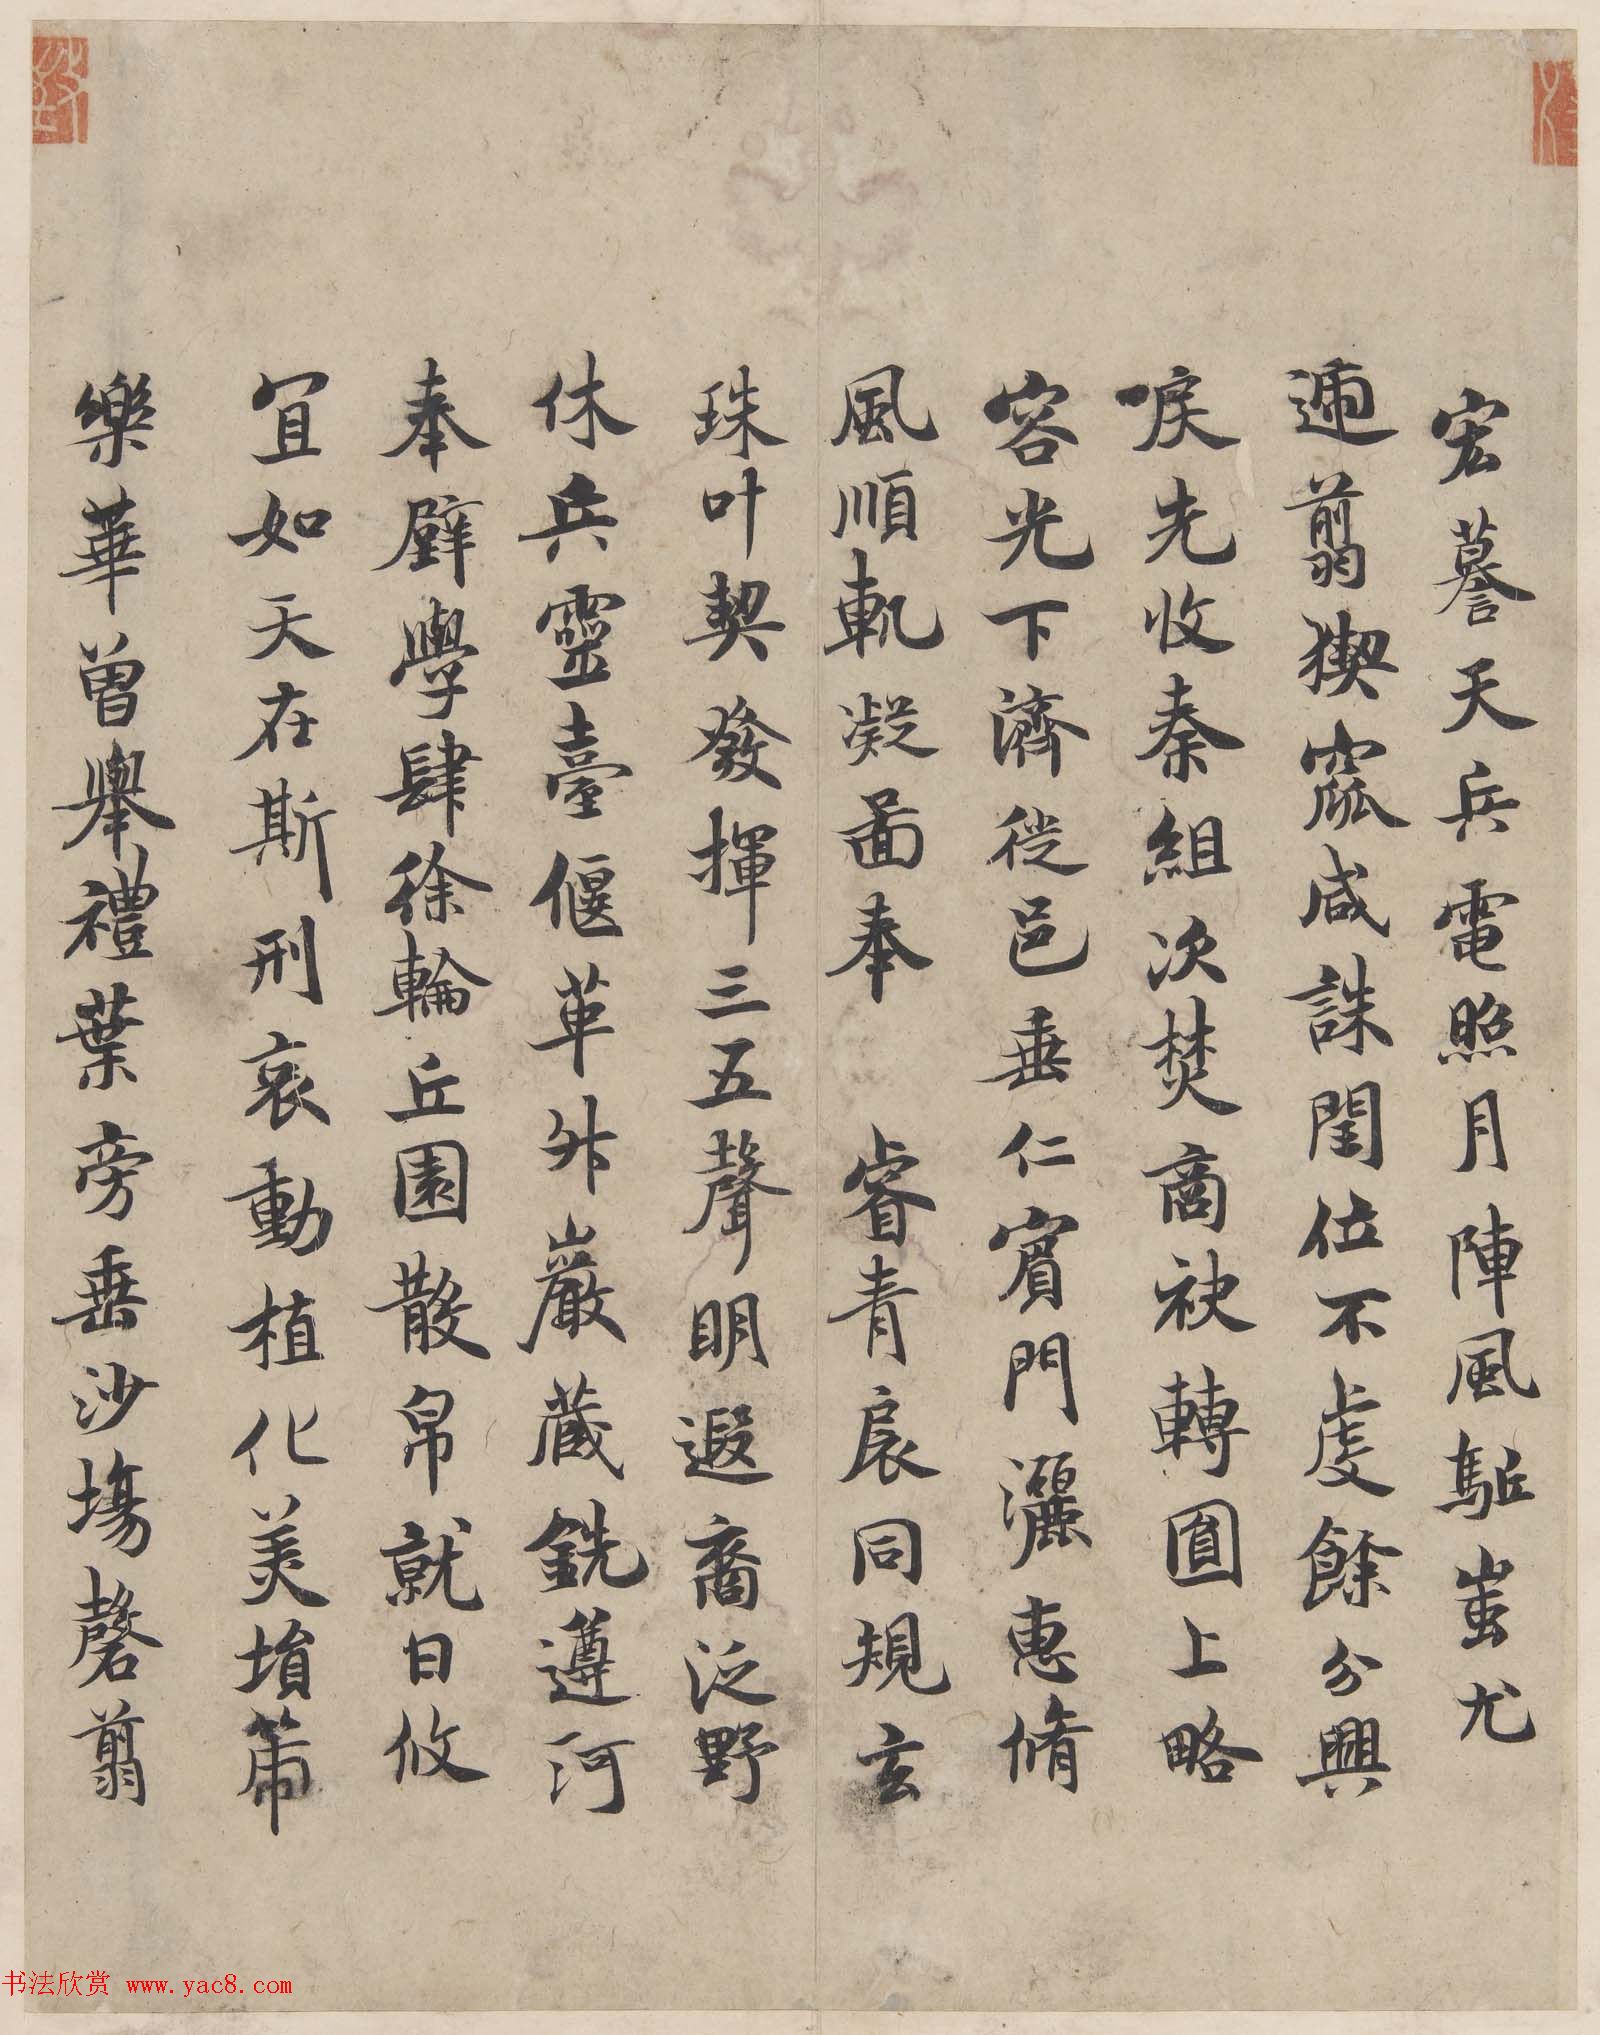 宏謩天兵電照月陣風駈蚩尤
遁翦猰窳咸誅閏位不虔餘分興
唳先收秦組次焚商袂轉圓上略
容光下濟從邑垂仁賓門灑惠脩
風順軌凝圖奉 睿青扆同規玄
珠叶契發揮三五聲明遐裔泛野
休兵靈臺偃革外巖藏銑遵河
奉璧學肆徐輪丘園散帛就日攸
宜如天在斯刑哀動植化美塤箒
樂華曾舉禮葉旁垂沙場罄翦
书法欣赏 www.yac8.com